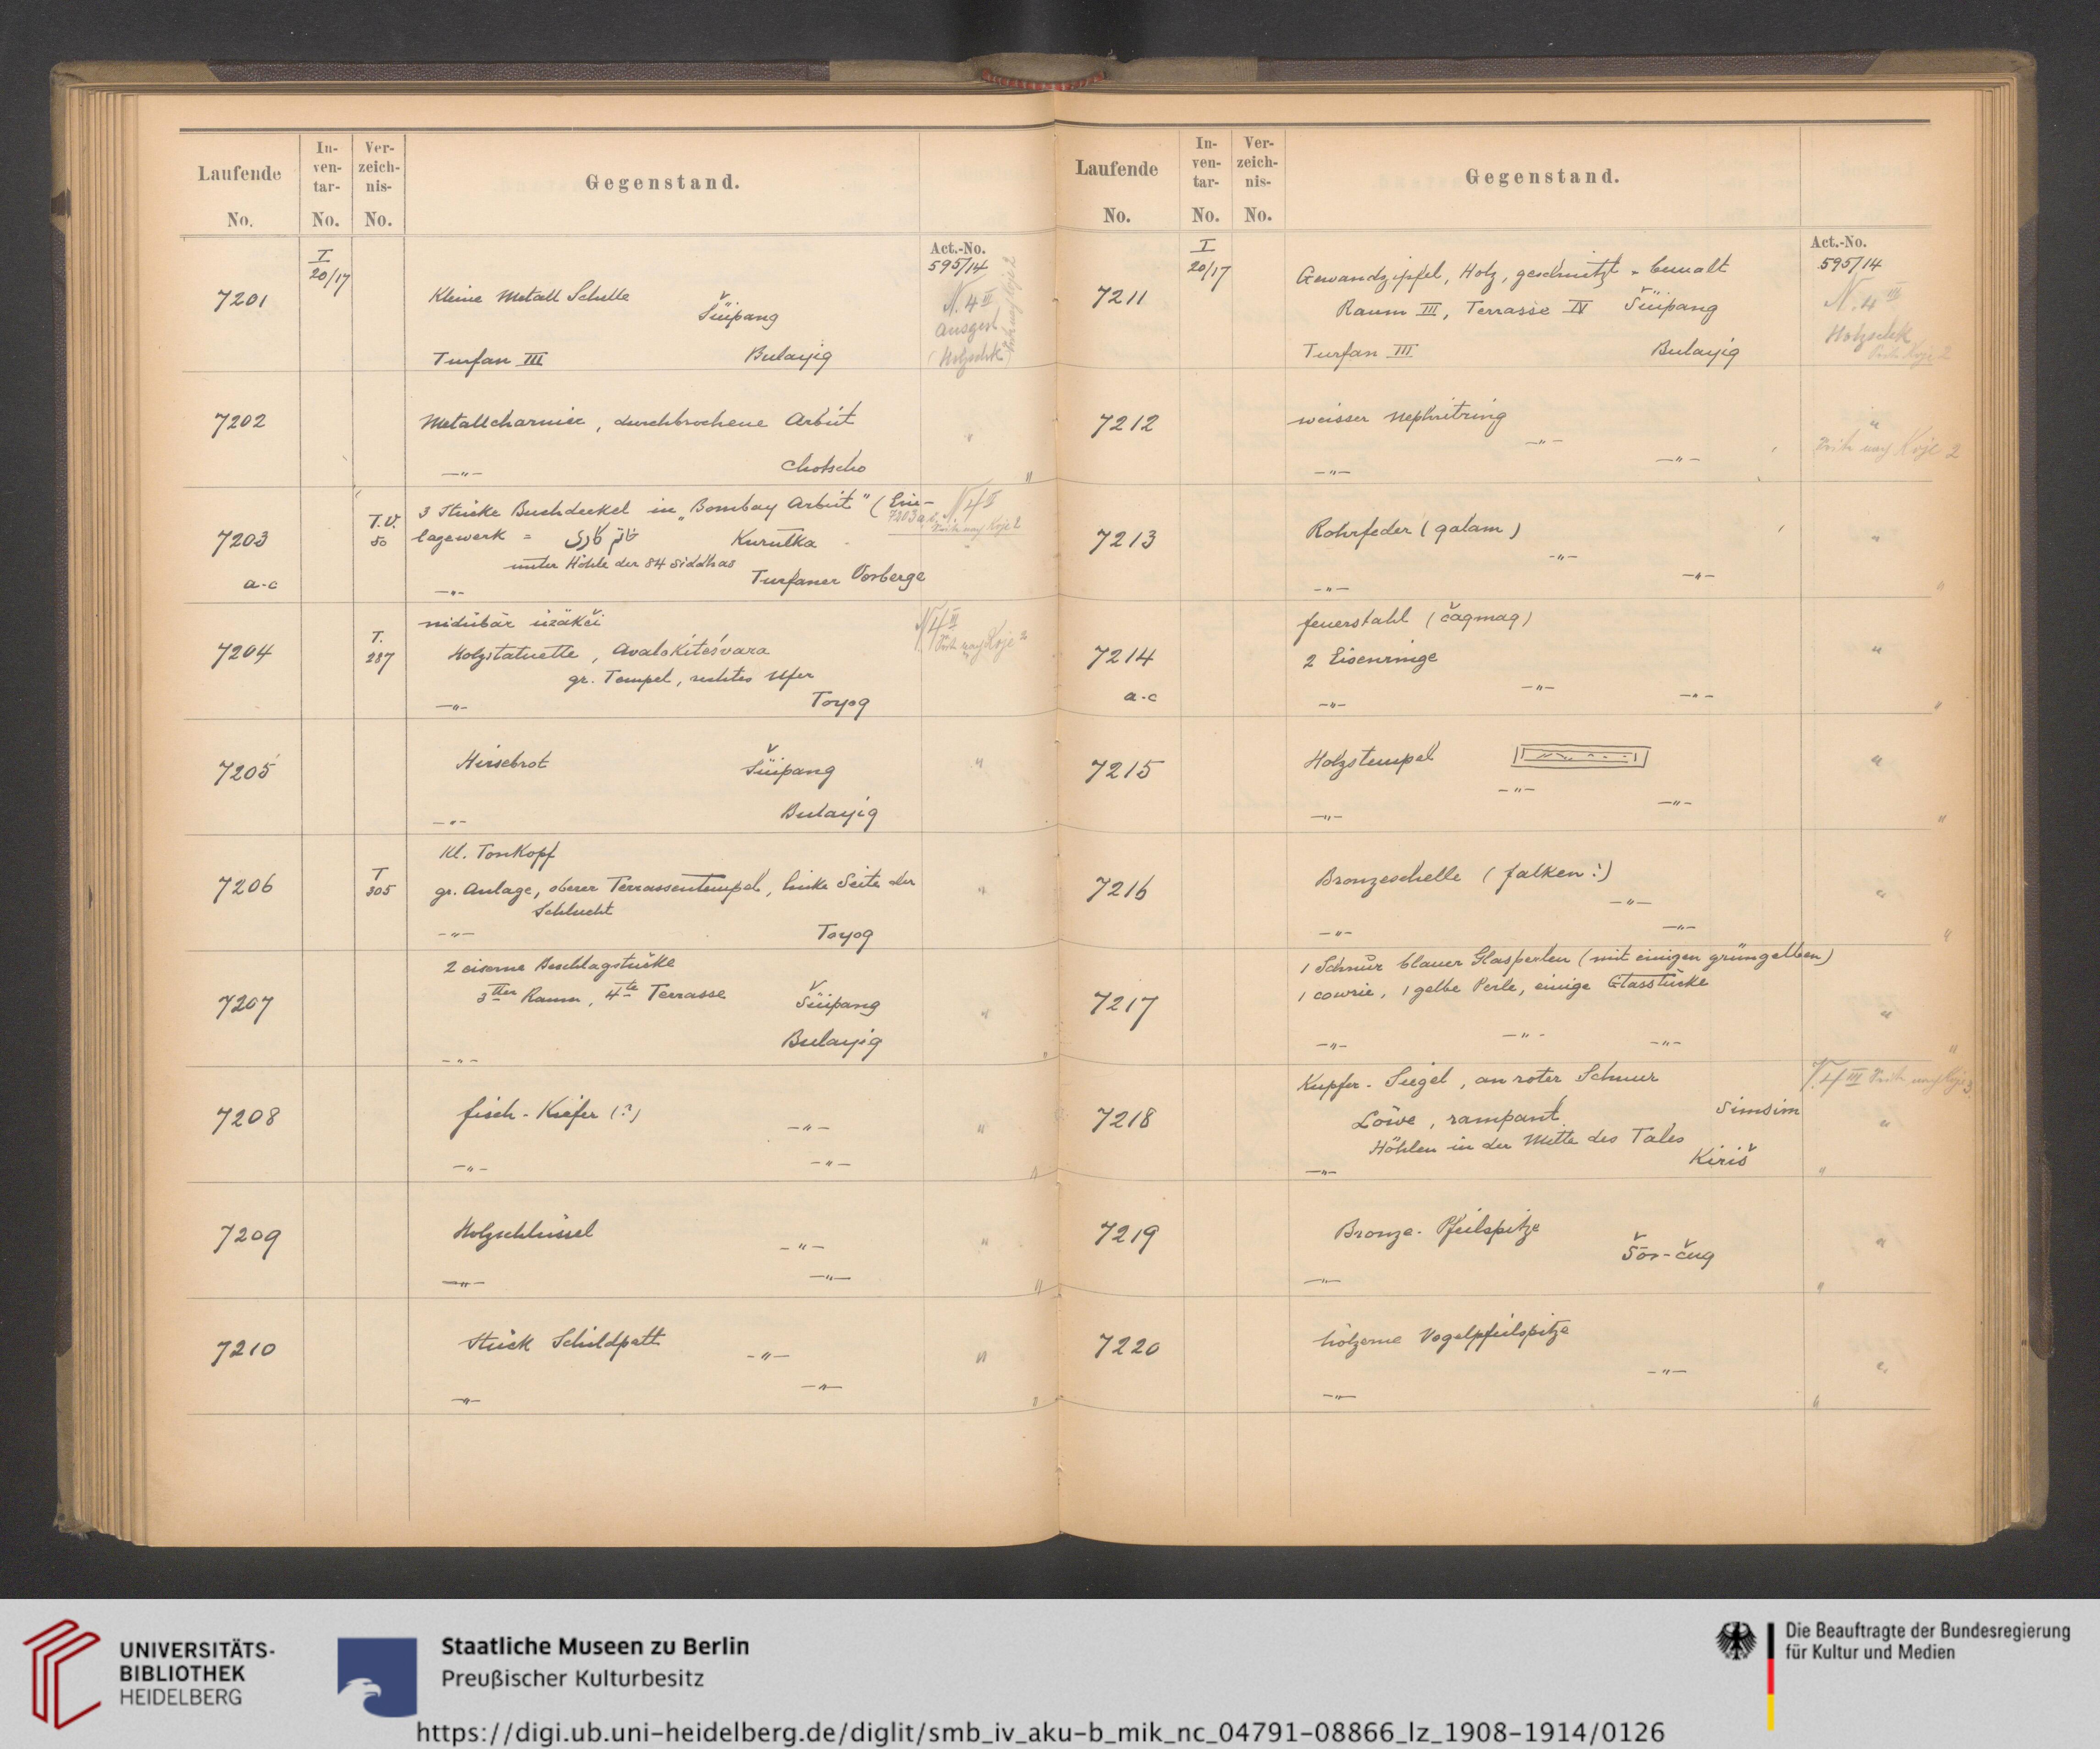 Laufende
No.
In-
ven-
tar-
No.
Ver-
zeich-
nis-
No.
Gegenstand.
I
20/17
Act.-No.
595/14
7201
Kleine Metall Schelle
Šüipang
N. 4 III
ausgest
(Holzschk)
Turfan III Bulayïq
7202
Metallcharnier, durchbrochene Arbeit
"
—"— Chotscho "
7203
a-c
T.V.
50
3 Stücke Buchdeckel in „Bombay Arbeit" (Ein-
lagewerk = خاتم کاری Kurutka
unter Höhle der 84 Siddhas
—"— Turfaner Vorberge
7203 a.b. Koje 2
7204
T.
287
nidübär üzäkči
Holzstatuette, Avalokiteśvara
gr. Tempel, rechtes Ufer
—"— Toyoq
N 4 III
Koje 2
7205
Hirsebrot Šüipang "
—"— Bulayïq
7206
T
305
Kl. Tonkopf
gr. Anlage, oberer Terrassentempel, linke Seite der
Schlucht
"
—"— Toyoq
7207
2 eiserne Beschlagstücke
3ter Raum, 4te Terrasse Šüipang
"
Bulayïq
—"— "
7208
fisch-Kiefer (?) —"— "
—"— —"— "
7209
Holzschlüssel —"— "
—"— —"— "
7210
Stück Schildpatt —"— "
—"—
—"— "
Laufende
No.
In-
ven-
tar-
No.
Ver-
zeich-
nis-
No.
Gegenstand.
I
20/17
Act.-No.
595/14
7211
Gewandzipfel, Holz, geschnitzt u bemalt
Raum III, Terrasse IV Šüipang
N. 4 III
Holzschk
Koje 2
Turfan III Bulayïq
7212
weisser Nephritring
—"—
—"— —"—
"
Koje 2
7213
Rohrfeder (qalam) "
—"—
—"— —"— "
7214
a-c
feuerstahl (čaqmaq)
2 Eisenringe "
—"— —"—
—"— "
7215
Holzstempel "
—"— —"—
—"— "
7216
Bronzeschelle (falken?)
—"— "
—"— —"— "
7217
1 Schnur blauer Glasperlen (mit einigen grüngelben)
1 cowrie, 1 gelbe Perle, einige Glasstücke "
—"— —"— —"— "
7218
Kupfer-Siegel, an roter Schnur
Löwe, rampant Simsim
Höhlen in der Mitte des Tales
—"— Kiriš "
N. 4 III
"
7219
Bronze-Pfeilspitze
Šor-čuq "
—"— "
7220
hölzerne Vogelpfeilspitze
—"— "
—"— "
UNIVERSITÄTS-
BIBLIOTHEK
HEIDELBERG
Staatliche Museen zu Berlin
Preußischer Kulturbesitz
Die Beauftragte der Bundesregierung
für Kultur und Medien
https://digi.ub.uni-heidelberg.de/diglit/smb_iv_aku-b_mik_nc_04791-08866_lz_1908-1914/0126